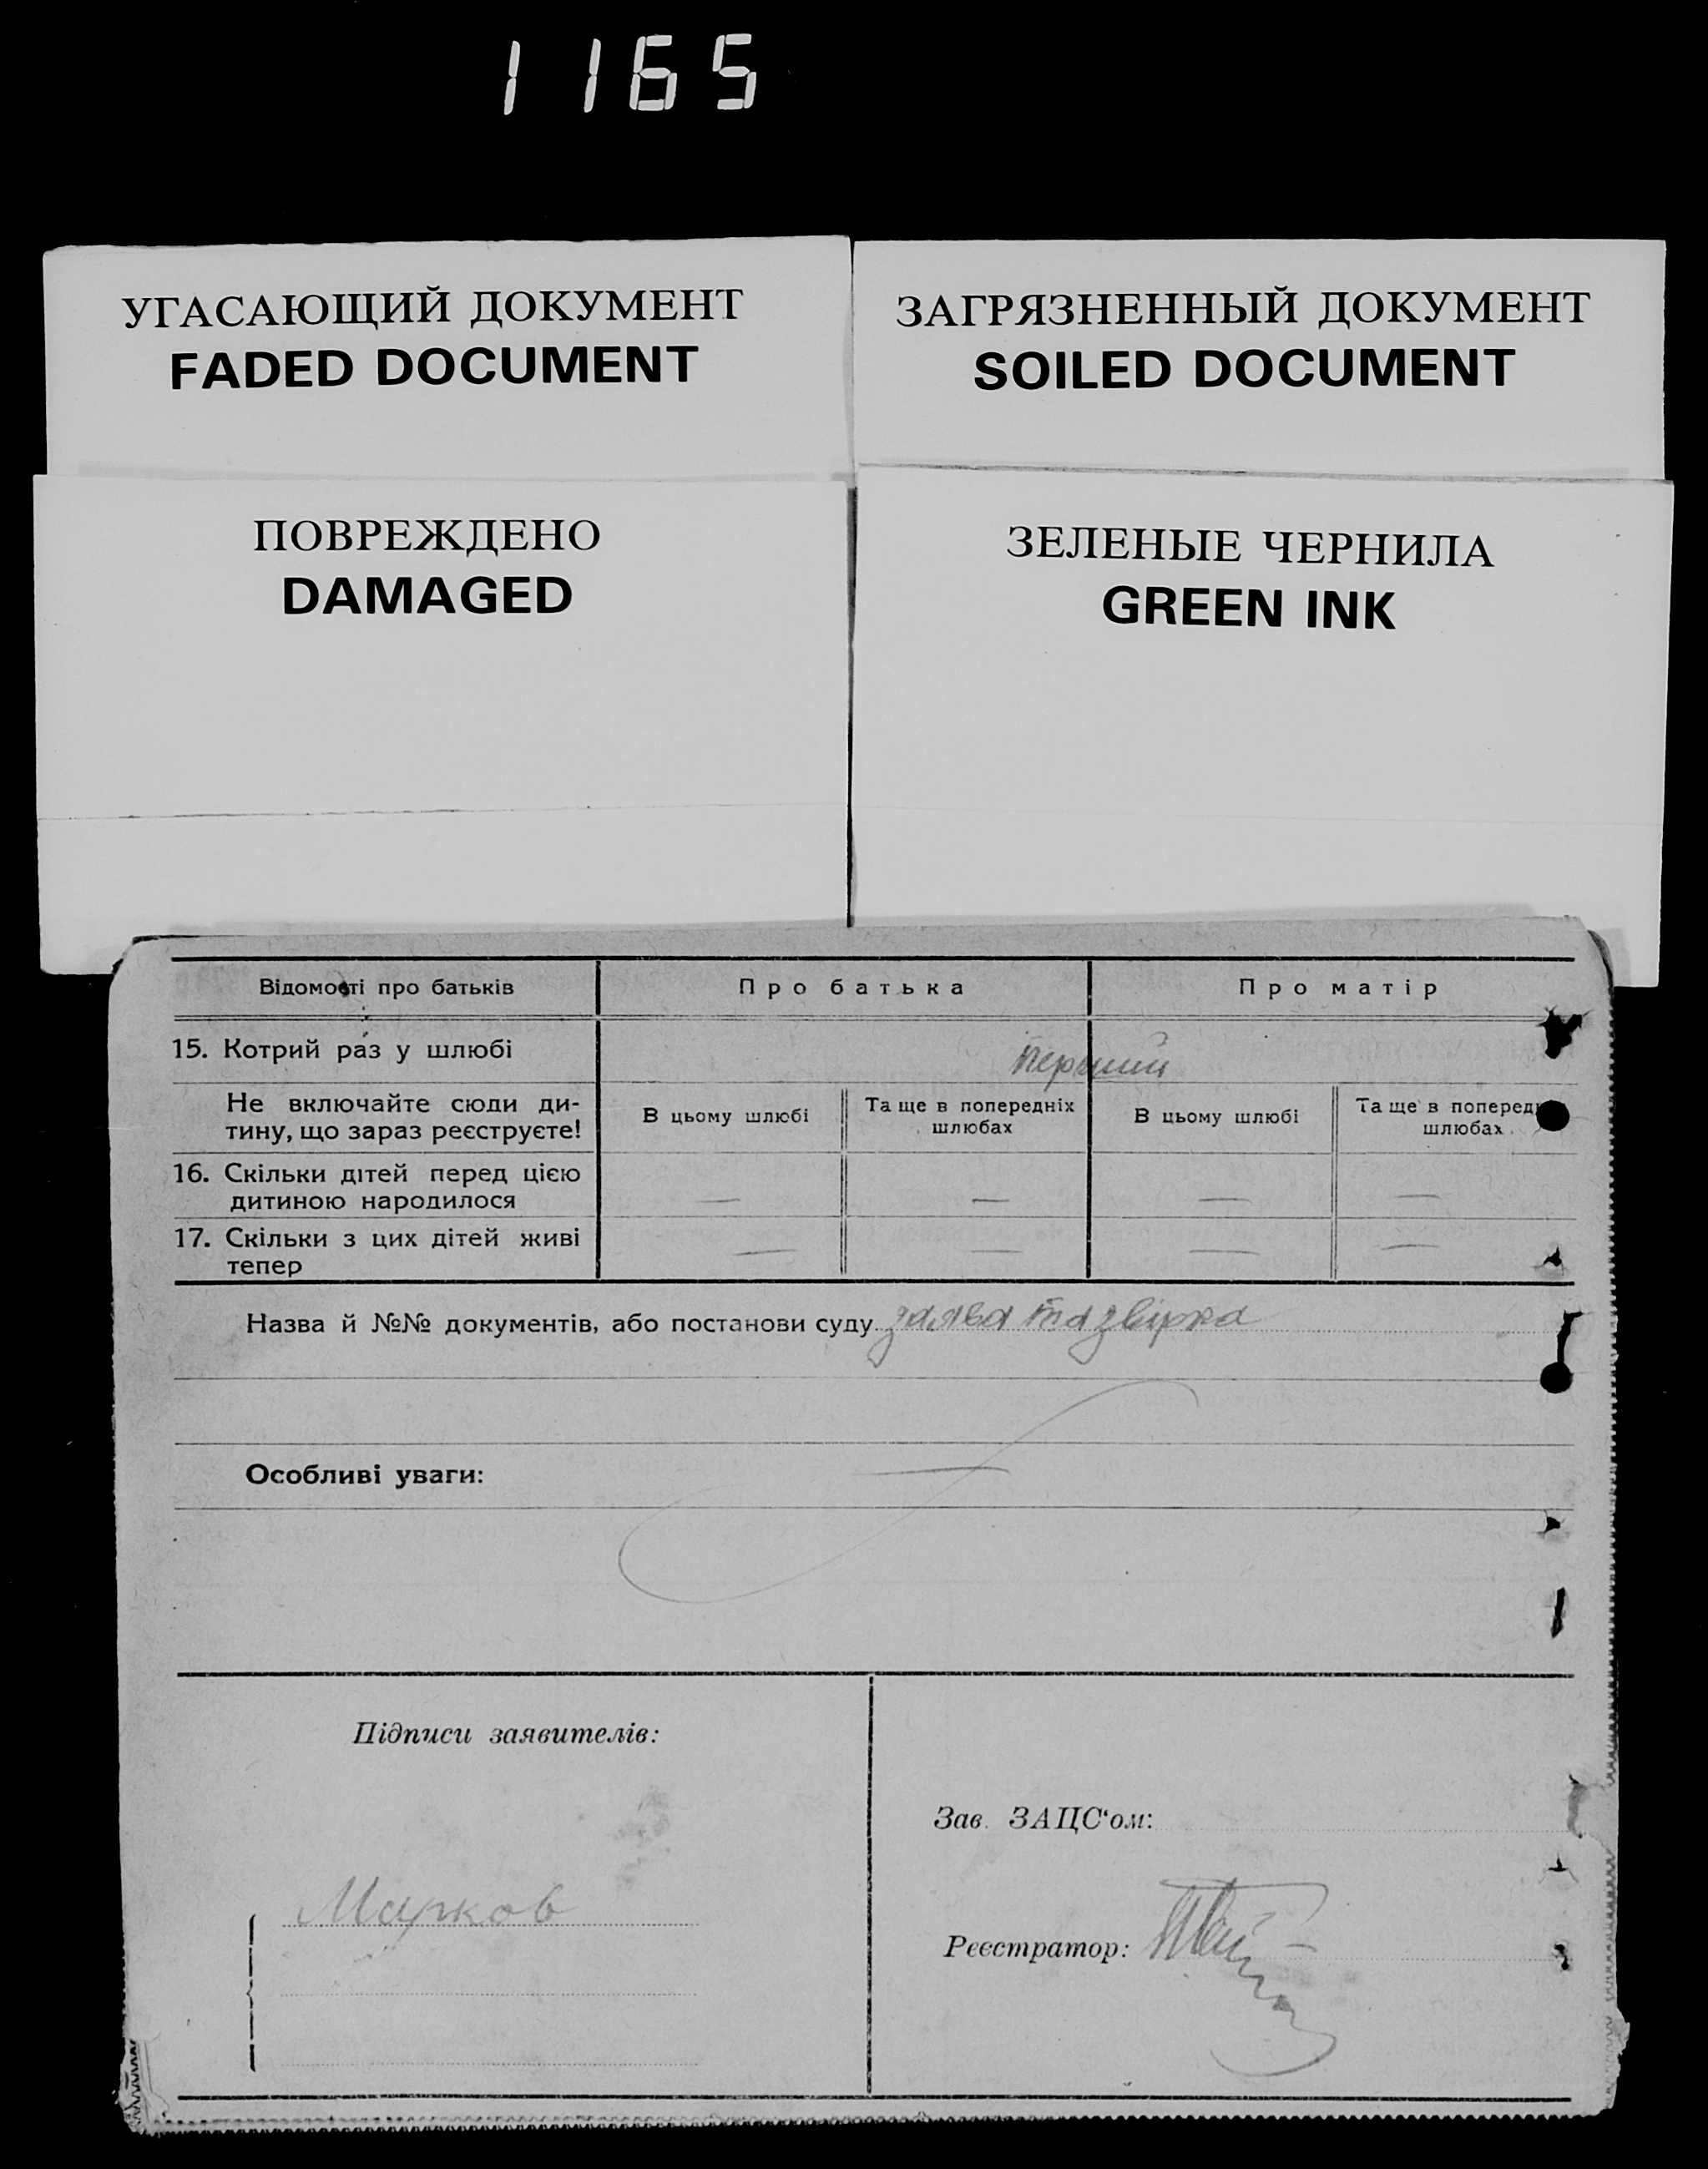 1165
УГАСАЮЩИЙ ДОКУМЕНТ
FADED DOCUMENT
ЗАГРЯЗНЕННЫЙ ДОКУМЕНТ
SOILED DOCUMENT
ПОВРЕЖДЕНО
DAMAGED
ЗЕЛЕНЫЕ ЧЕРНИЛА
GREEN INK
Відомості про батьків
Про батька
Про матір
15. Котрий раз у шлюбі
перший
Не включайте сюди ди-
тину, що зараз реєструєте!
В цьому шлюбі
Та ще в попередніх
шлюбах
В цьому шлюбі
Та ще в поперед
шлюбах
16. Скільки дітей перед цією
дитиною народилося
— — — —
17. Скільки з цих дітей живі
тепер
— — — —
Назва й №№ документів, або постанови суду заява та звірка
Особливі уваги: —
Підписи заявителів:
Марков
Зав. ЗАЦС‘ом:
Реєстратор: